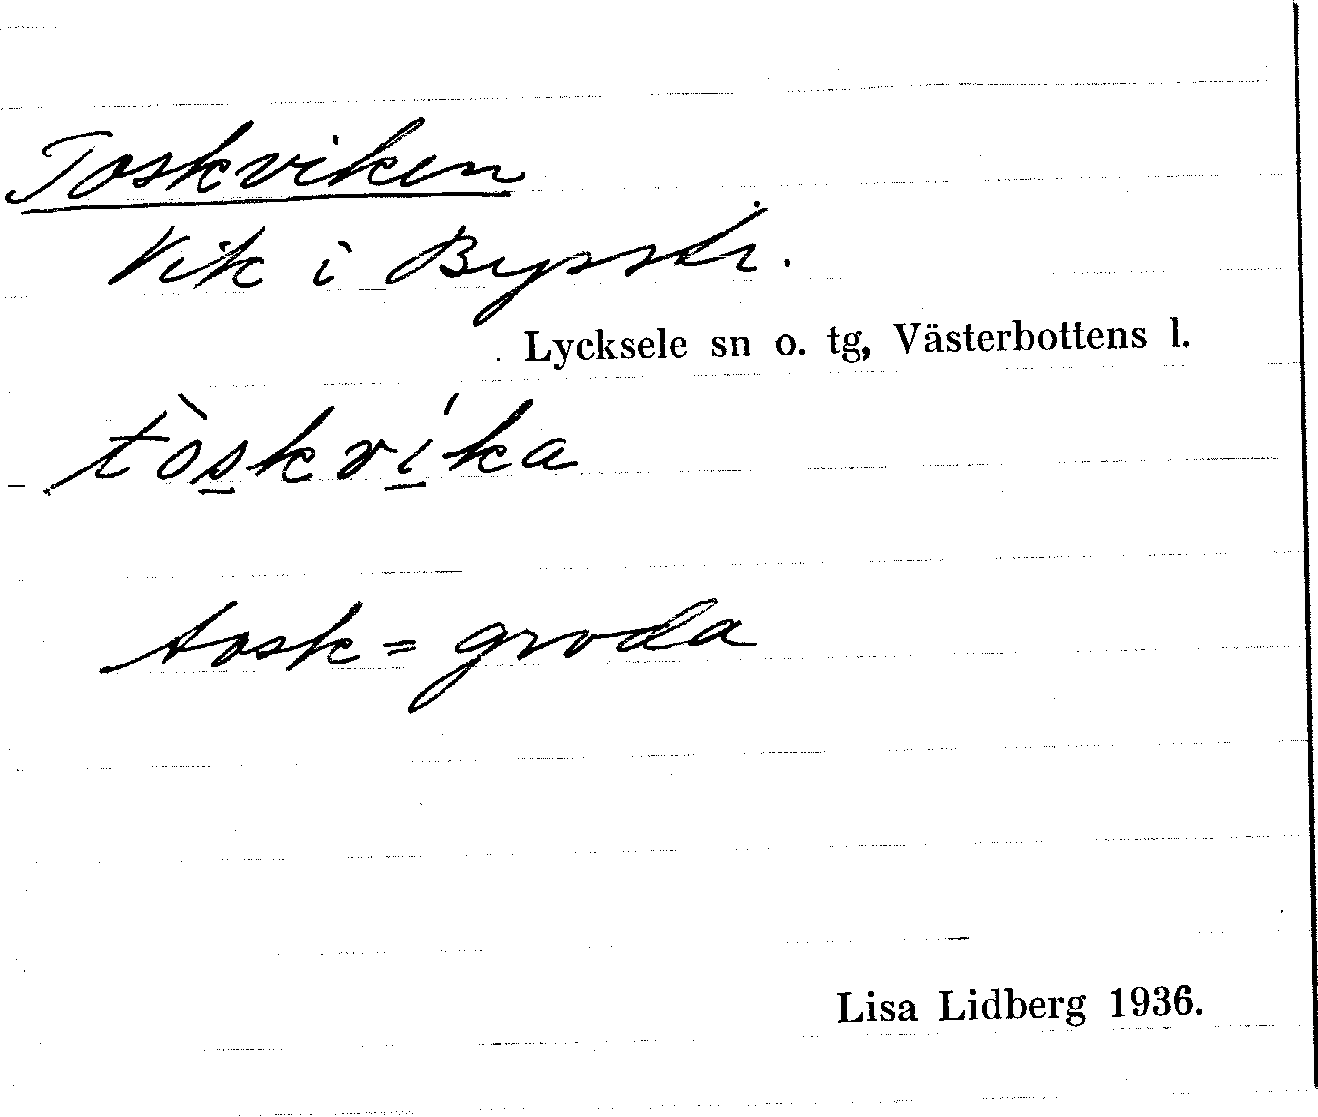 Toskviken
Vik i
Lycksele sn o. tg, Västerbottens l.
tòskvíka
tosk = groda
Lisa Lidberg 1936.